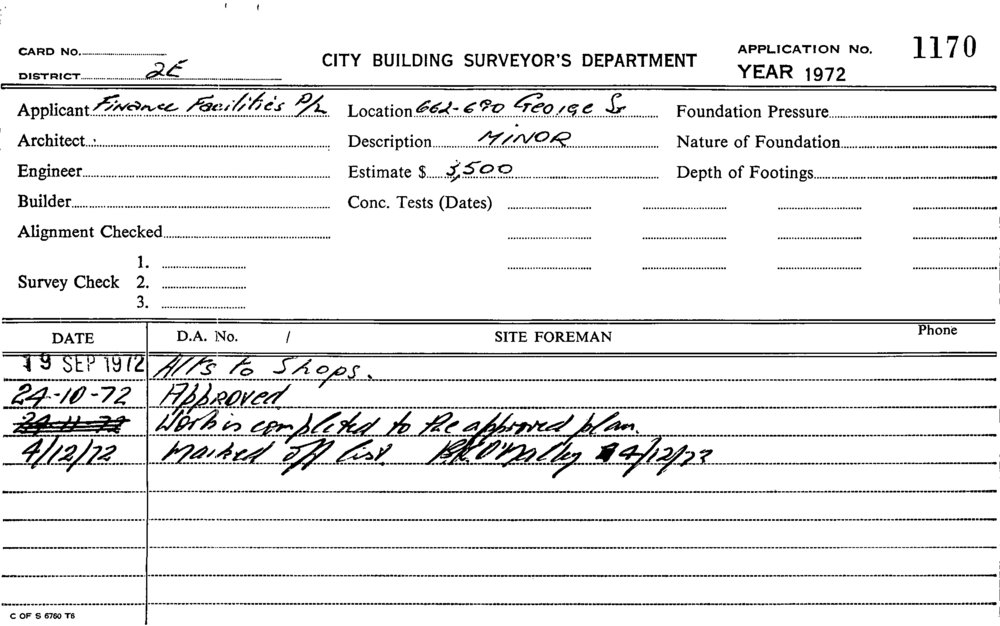 CARD No.
CITY BUILDING SURVEYOR'S DEPARTMENT
APPLICATION No. 1170
DISTRICT 2E
YEAR 1972
Applicant Finance Facilities P/L Location 662-690 George St Foundation Pressure
Architect Description MINOR Nature of Foundation
Engineer Estimate $ 3,500 Depth of Footings
Builder Conc. Tests (Dates)
Alignment Checked
Survey Check 1.
2.
3.
DATE D.A. No. / SITE FOREMAN Phone
19 SEP 1972 Alts to Shops.
24-10-72 Approved
24-11-72 Work is completed to the approved plan.
4/12/72 Marked off list. 4/12/72
C OF S 6760 T6